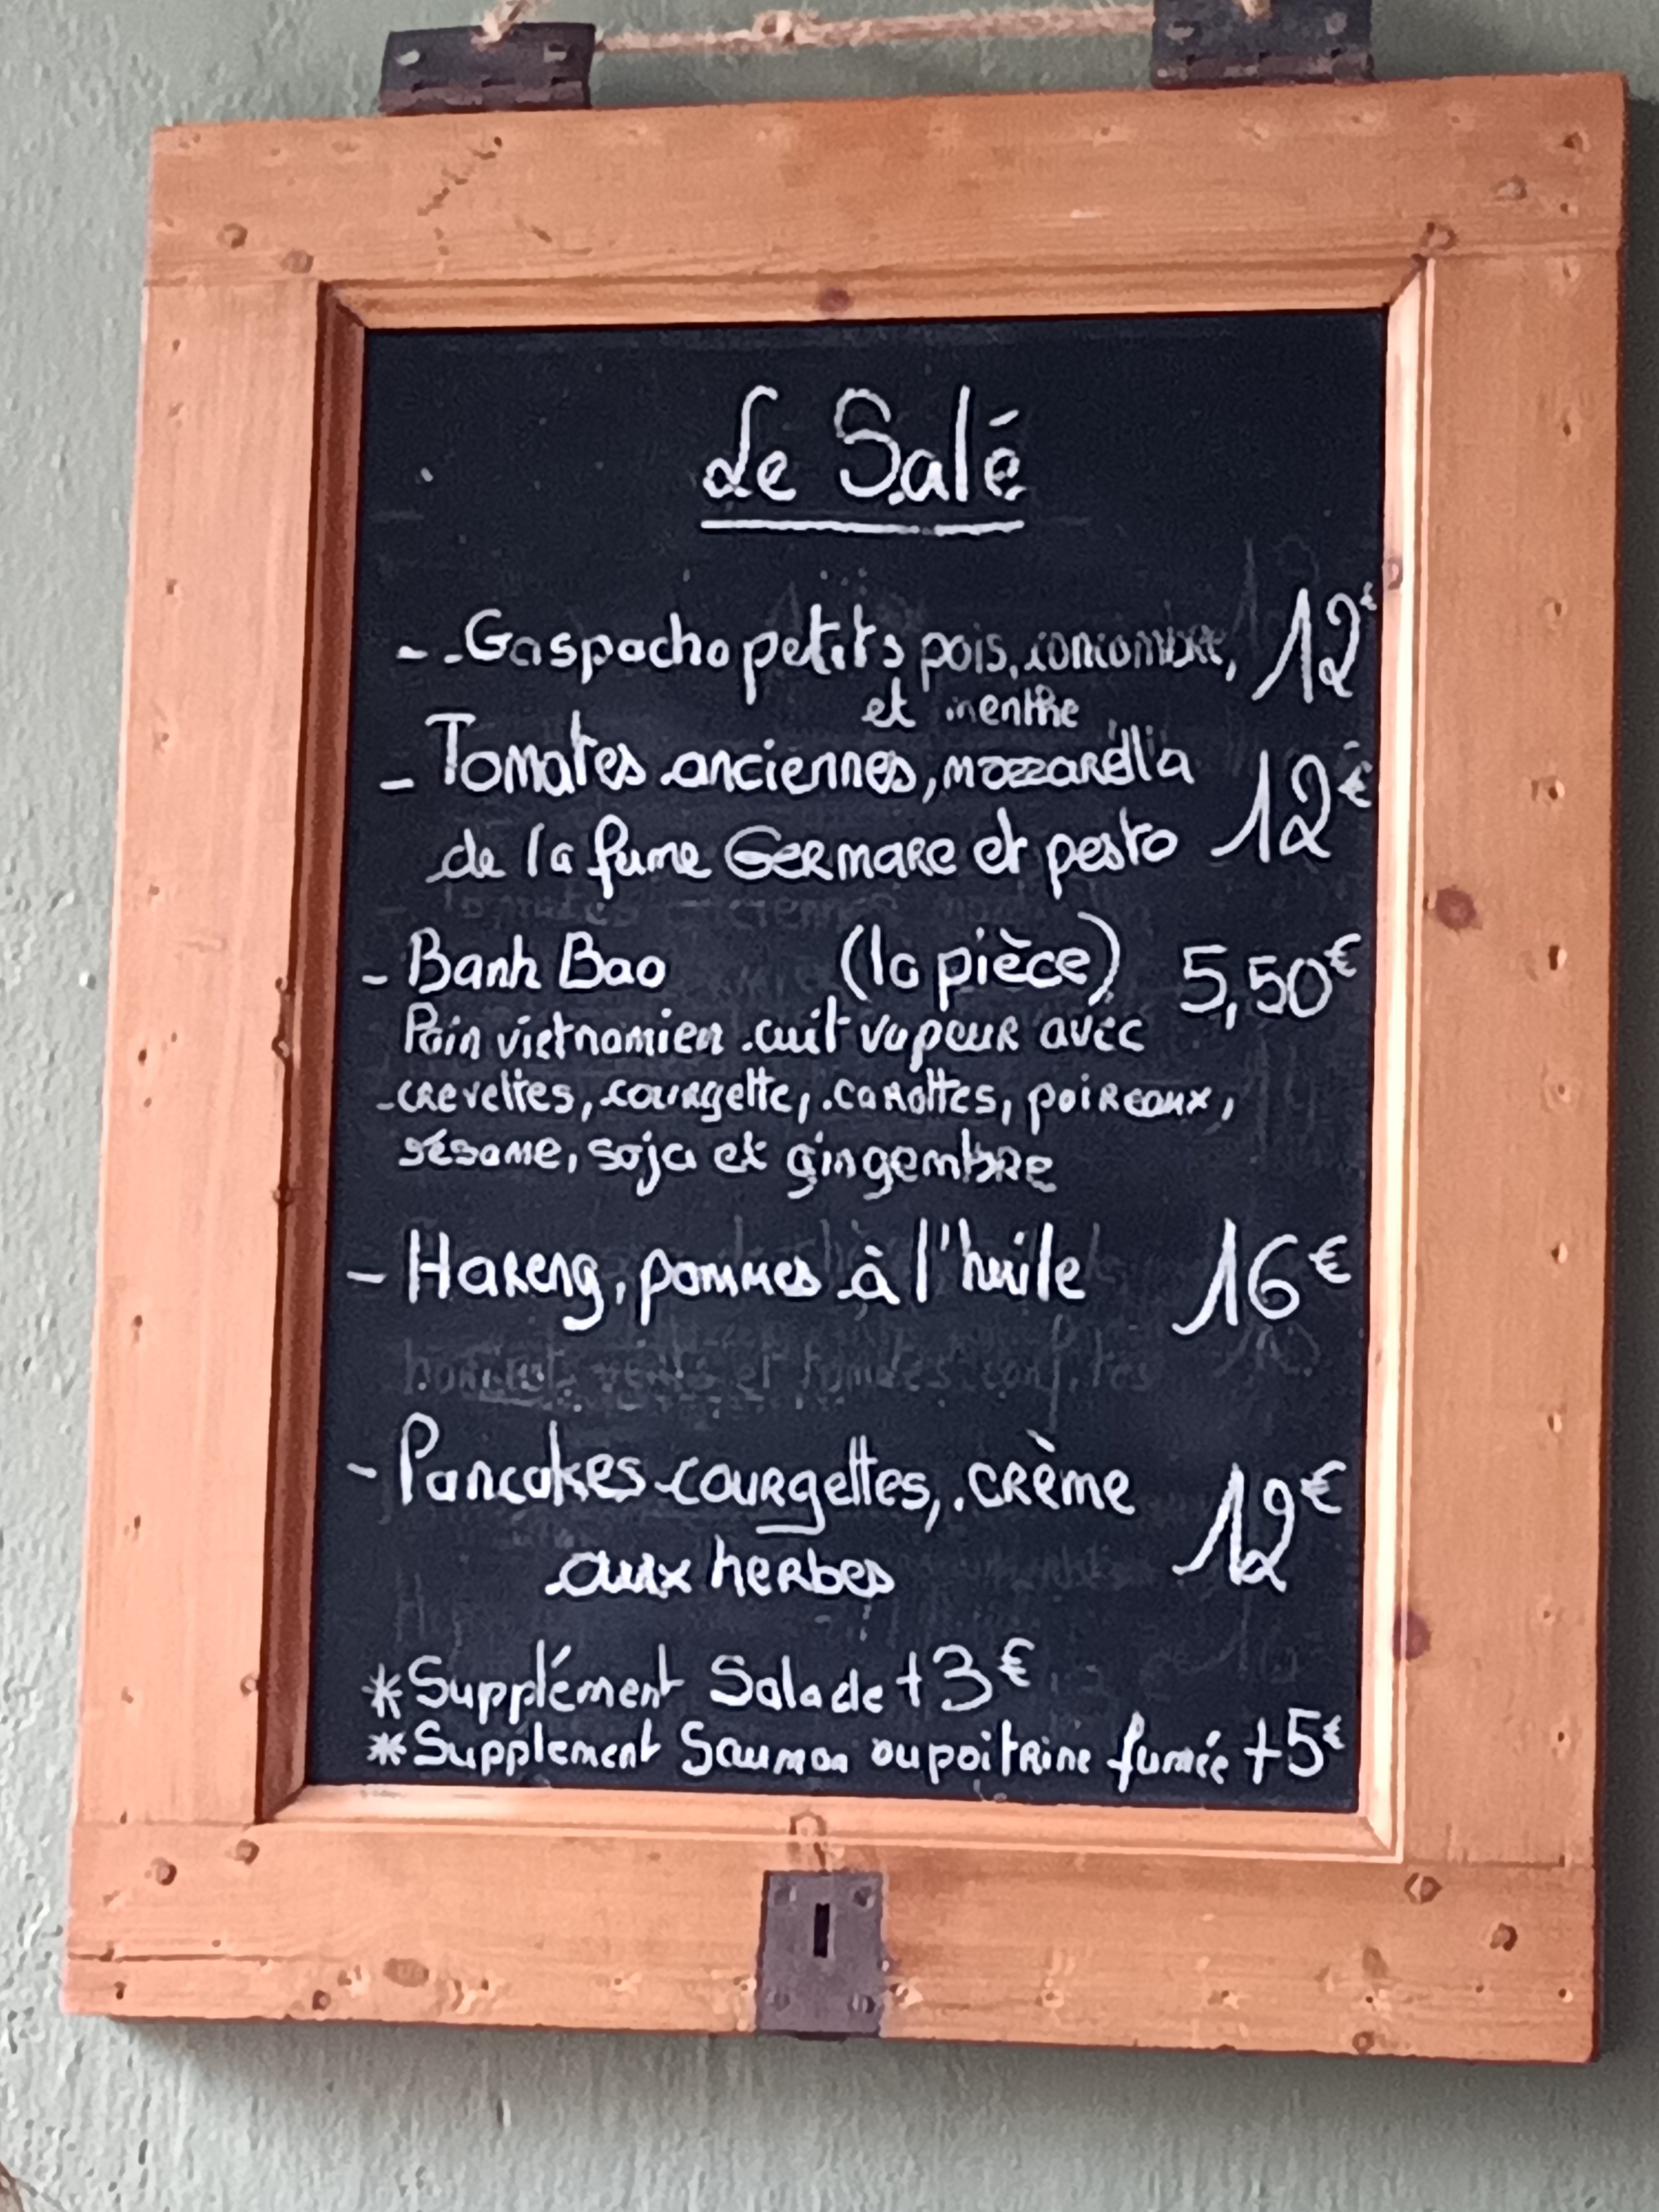 Le Salé
- Gaspacho petits pois, concombre, 12€
et menthe
- Tomates anciennes, mozzarella
de la fume Germare et pesto 12€
- Banh Bao (la pièce) 5,50€
Pain vietnamien cuit vapeur avec
crevettes, courgette, carottes, poireaux,
sésame, soja et gingembre
- Hareng, pommes à l'huile 16€
- Pancakes courgettes, crème
aux herbes 12€
*Supplément Salade +3€
*Supplément Saumon ou poitrine fumée +5€